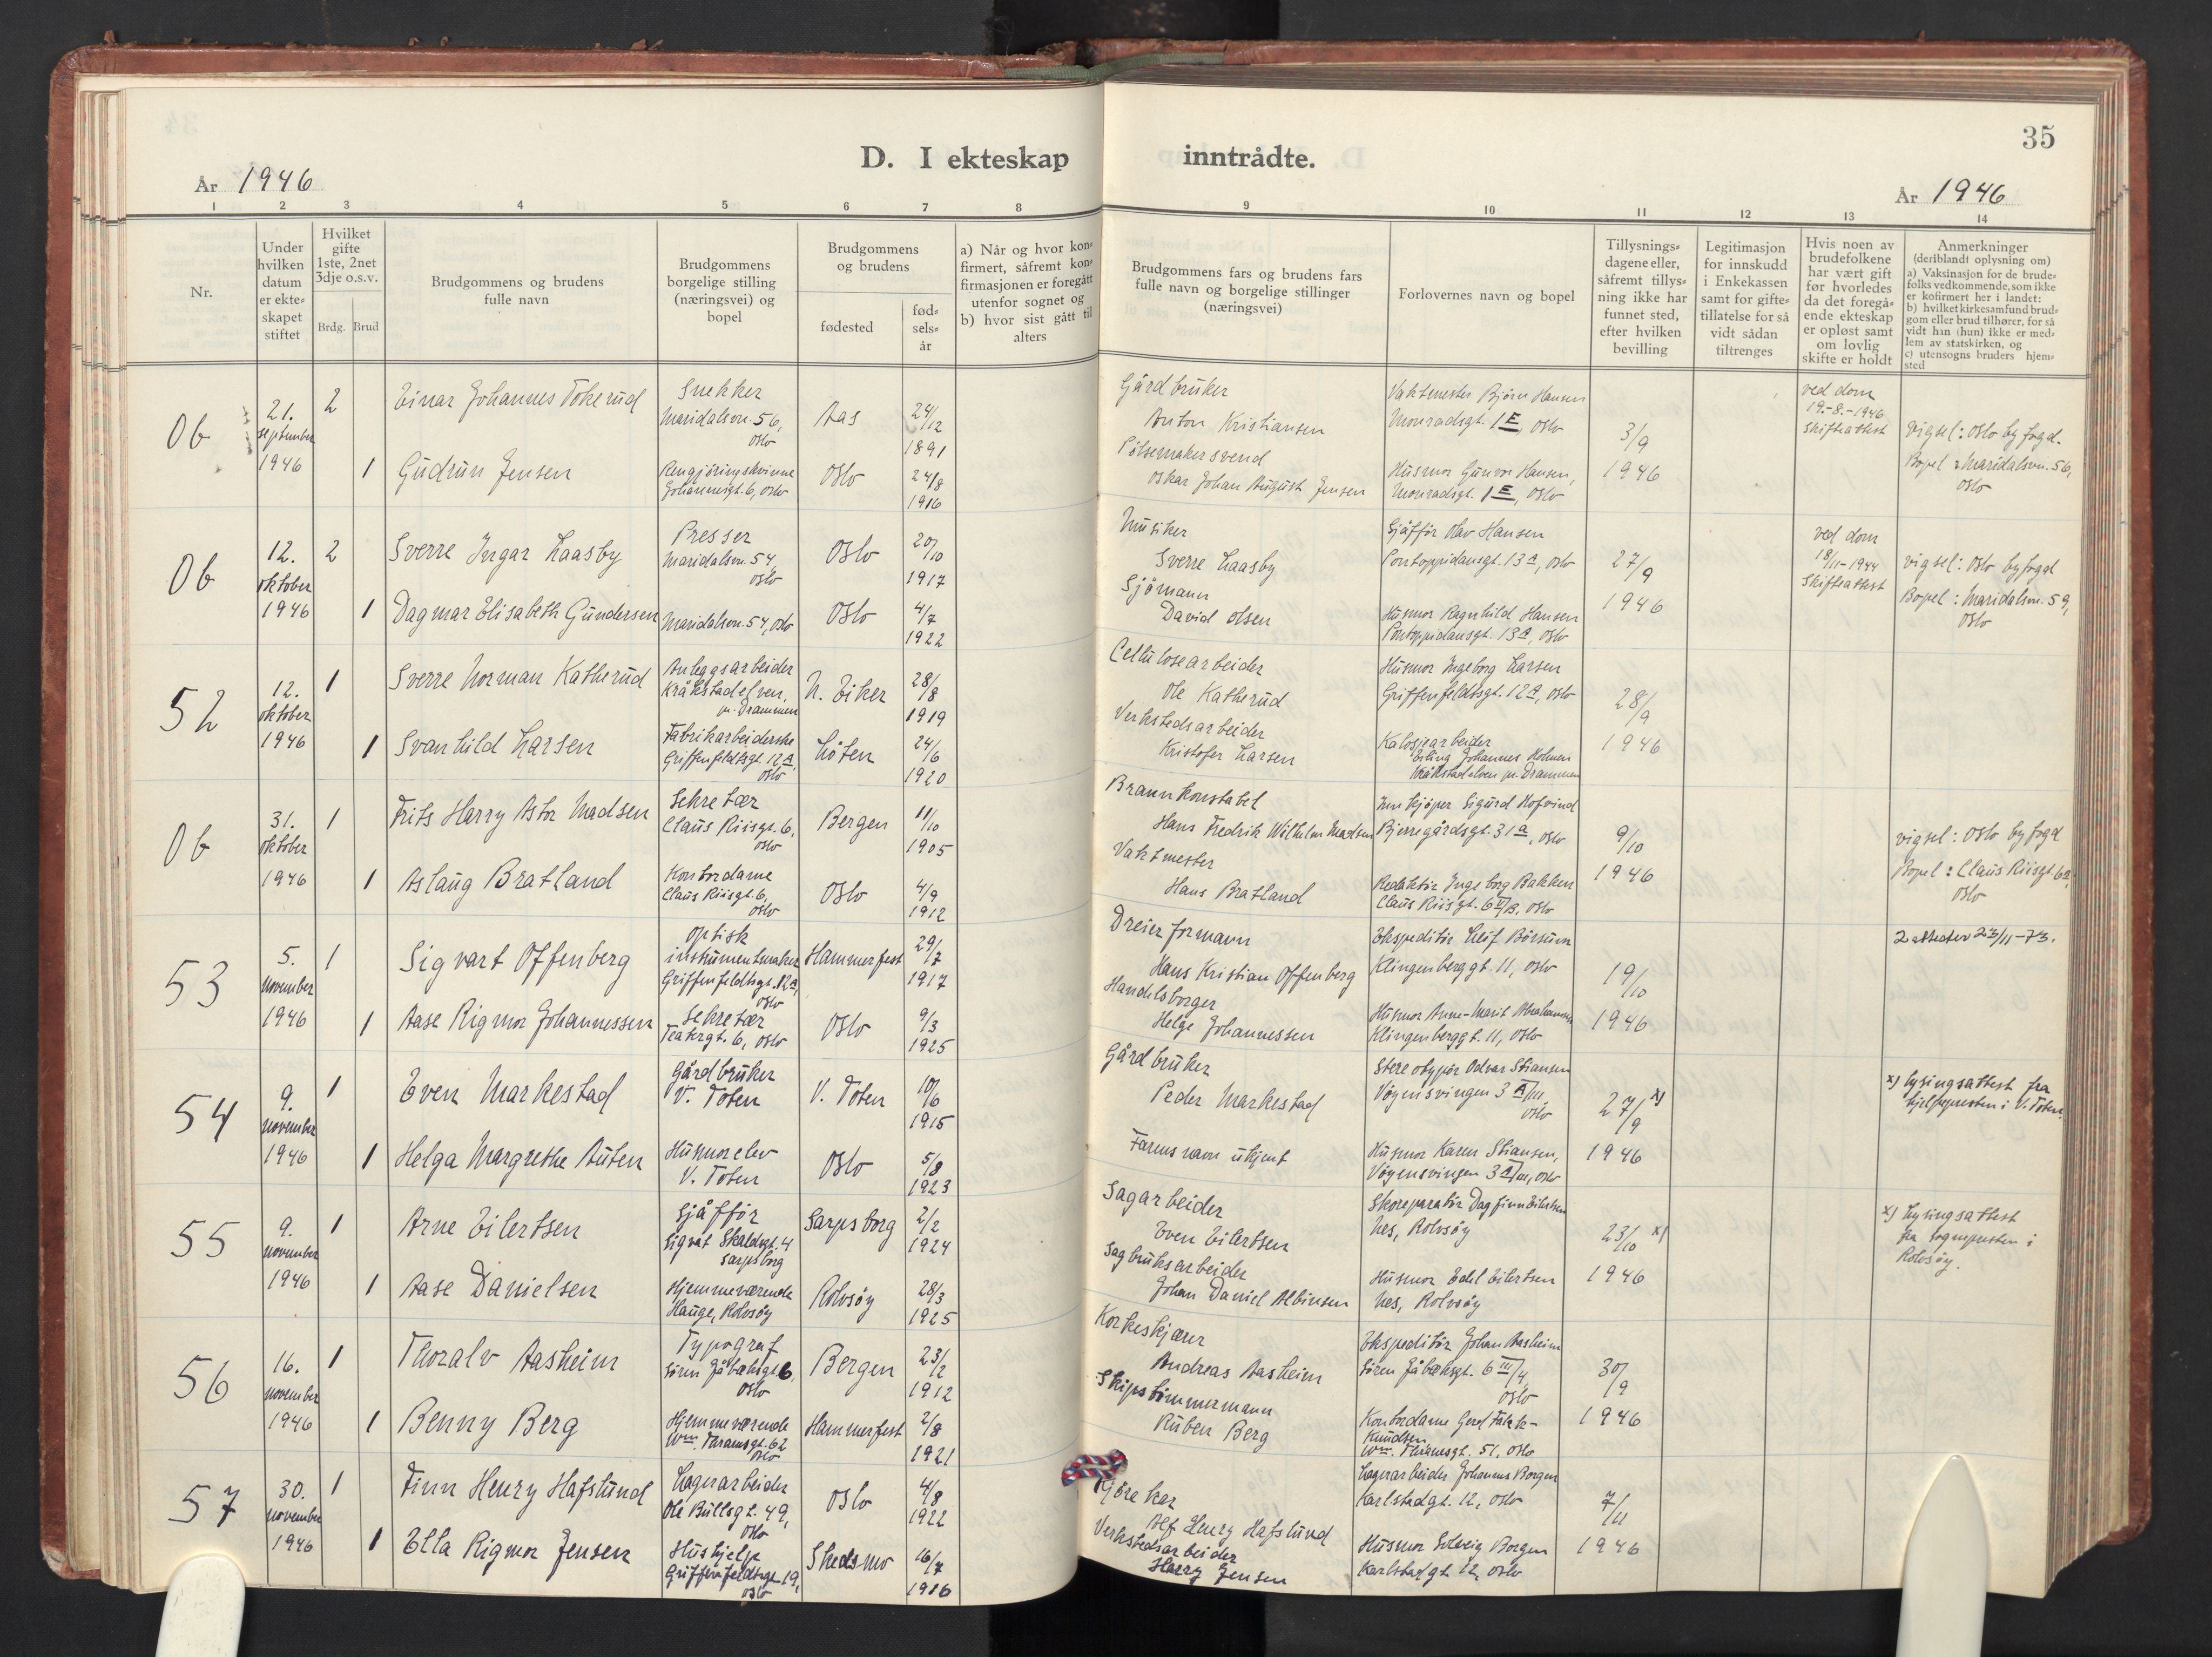 35
D. I ekteskap inntrådte.
År 1946
År 1946
1 2 3 4 5 6 7 8 9 10 11 12 13 14
Nr.
Under
hvilken
datum
er ekte-
skapet
stiftet
Hvilket
gifte
1ste, 2net
3dje o.s.v.
Brdg. Brud
Brudgommens og brudens
fulle navn
Brudgommens
borgelige stilling
(næringsvei) og
bopel
Brudgommens
og brudens
fødested
fød-
sels-
år
a) Når og hvor kon-
firmert, såfremt kon-
firmasjonen er foregått
utenfor sognet og
b) hvor sist gått til
alters
Brudgommens fars og brudens fars
fulle navn og borgelige stillinger
(næringsvei)
Forlovernes navn og bopel
Tillysnings-
dagene eller,
såfremt tillys-
ning ikke har
funnet sted,
efter hvilken
bevilling
Legitimasjon
for innskudd
i Enkekassen
samt for gifte-
tillatelse for så
vidt sådan
tiltrenges
Hvis noen av
brudefolkene
har vært gift
før hvorledes
da det foregå-
ende ekteskap
er opløst samt
om lovlig
skifte er holdt
Anmerkninger
(deriblandt oplysning om)
a) Vaksinasjon for de brude-
folks vedkommende, som ikke
er kofirmert her i landet:
b) hvilket kirkesamfund brud-
gom eller brud tilhører, for så
vidt han (hun) ikke er med-
lem av statskirken, og
c) utensogns bruders hjem-
sted
Ob
21.
september
1946
2
Einar Johannes Tokerud
Snekker
Maridalsvn. 56,
Oslo
Aas
24/12
1891
Gårdbruker
Anton Kristiansen
Vaktmester Bjørn Hansen
Monradsgt. 1 E, Oslo
3/9
1946
ved dom
19.-8.-1946
Skifteattest
Vigsel: Oslo byfogd.
Bopel: Maridalsvn. 56,
Oslo
1
Gudrun Jensen
Rengjøringskvinne
Johannesgt. 6, Oslo
Oslo
24/8
1916
Pølsemakersvend
Oskar Johan August Jensen
Husmor Gunvor Hansen,
Monradsgt. 1 E, Oslo
Ob
12.
oktober
1946
2
Sverre Ingar Laasby
Presser
Maridalsvn. 54,
Oslo
Oslo
20/10
1917
Musiker
Sverre Laasby
Sjåfför Olav Hansen
Pontoppidansgt. 13 a, Oslo
27/9
1946
ved dom
18/11-1944
Skifteattest
Vigsel: Oslo byfogd
Bopel: Maridalsvn. 59,
Oslo
1
Dagmar Elisabeth Gundersen
Maridalsvn. 54, Oslo
Oslo
4/7
1922
Sjömann
David Olsen
Husmor Ragnhild Hansen
Pontoppidansgt. 13 a, Oslo
52
12.
oktober
1946
1
Sverre Norman Katherud
Anleggsarbeider
Kråkstadelven,
pr. Drammen
N. Eiker
28/8
1919
Cellulosearbeider
Ole Katherud
Husmor Ingeborg Larsen
Griffenfeldtsgt. 12 a, Oslo
28/9
1946
1
Svanhild Larsen
Fabrikarbeiderske
Griffenfeldtsgt. 12 a,
Oslo
Löten
24/6
1920
Verkstedsarbeider
Kristofer Larsen
Kalosjearbeider
Erling Johannes Holmen
Kråkstadelven pr. Drammen
Ob
31.
oktober
1946
1
Frits Harry Astor Madsen
Sekretær
Claus Riisgt. 6,
Oslo
Bergen
11/10
1905
Brannkonstabel
Hans Fredrik Wilhelm Madsen
Innkjøper Sigurd Hofvind
Bjerregårdsgt. 31 a, Oslo
9/10
1946
Vigsel: Oslo byfogd
Bopel: Claus Riisgt. 6 a,
Oslo
1
Aslaug Bratland
Kontordame
Claus Riisgt. 6,
Oslo
Oslo
4/9
1912
Vaktmester
Hans Bratland
Redaktör Ingeborg Bakken
Claus Riisgt. 6 II/B, Oslo
53
5.
november
1946
1
Sigvart Offenberg
Optisk
instrumentmaker
Griffenfeldtsgt. 12 a,
Oslo
Hammerfest
29/7
1917
Dreierformann
Hans Kristian Offenberg
Ekspeditör Leif Börsum
Klingenberggt. 11, Oslo
19/10
1946
2 attester 23/11-73.
1
Aase Rigmor Johannessen
Sekretær
Teatergt. 6, Oslo
Oslo
9/3
1925
Handelsborger
Helge Johannessen
Husmor Anne-Marit Abrahamsen
Klingenberggt. 11, Oslo
54
9.
november
1946
1
Even Markestad
Gårdbruker
V. Toten
V. Toten
10/6
1915
Gårdbruker
Peder Markestad
Stereotypör Odvar Stiansen
Vöyensvingen 3 a/III,
Oslo
27/9 x)
1946
x) Lysingsattest fra
hjelpepresten i V. Toten.
1
Helga Margrethe Auten
Husmorelev
V. Toten
Oslo
5/8
1923
Farens navn ukjent
Husmor Karen Stiansen,
Vöyensvingen 3 a/III, Oslo
55
9.
november
1946
1
Arne Eilertsen
Sjåfför
Sigvat Skaldsgt. 4
Sarpsborg
Sarpsborg
2/2
1924
Sagarbeider
Even Eilertsen
Skoreparatör Dagfinn Eilertsen
Nes, Rolvsöy
23/10 x)
1946
x) Lysingsattest
fra sognepresten i
Rolvsöy.
1
Aase Danielsen
Hjemmeværende
Hauge, Rolvsöy
Rolvsöy
28/3
1925
Sagbruksarbeider
Johan Daniel Albinsen
Husmor Edel Eilertsen
Nes, Rolvsöy
56
16.
november
1946
1
Thoralv Aasheim
Typograf
Sören Jåbæksgt. 6,
Oslo
Bergen
23/2
1912
Korkeskjærer
Andreas Aasheim
Ekspeditör Johan Aasheim
Sören Jåbæksgt. 6 III/4,
Oslo
30/9
1946
1
Benny Berg
Hjemmeværende
Wm. Thranesgt. 62
Oslo
Hammerfest
2/8
1921
Skipstömmermann
Ruben Berg
Kontordame Gerd Falck-
Knudsen
Wm. Thranesgt. 51, Oslo
57
30.
november
1946
1
Finn Henry Hafslund
Lagerarbeider
Ole Bullsgt. 49,
Oslo
Oslo
4/8
1922
Kjörekar
Alf Henry Hafslund
Lagerarbeider Johannes Borgen
Karlstadgt. 12, Oslo
7/11
1946
1
Ella Rigmor Jensen
Hushjelp
Griffenfeldtsgt. 19,
Oslo
Skedsmo
16/7
1916
Verkstedsarbeider
Harry Jensen
Husmor Solveig Borgen
Karlstadgt. 12, Oslo